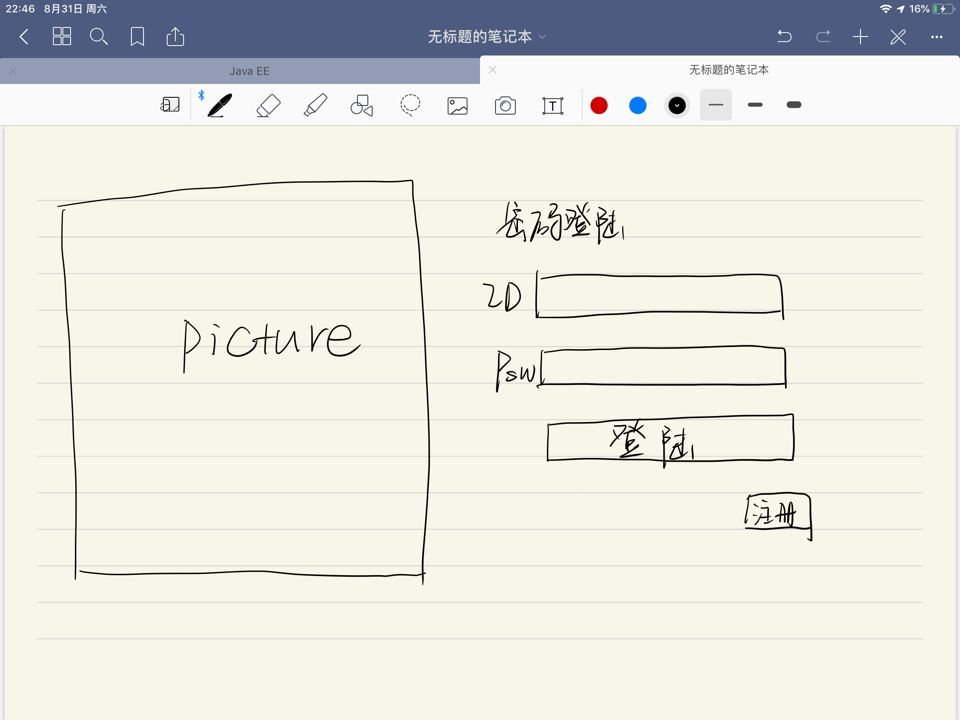 22:46 8月31日 周六
16%
无标题的笔记本
Java EE
无标题的笔记本
T
picture
密码登陆
ID
Psw
登陆
注册